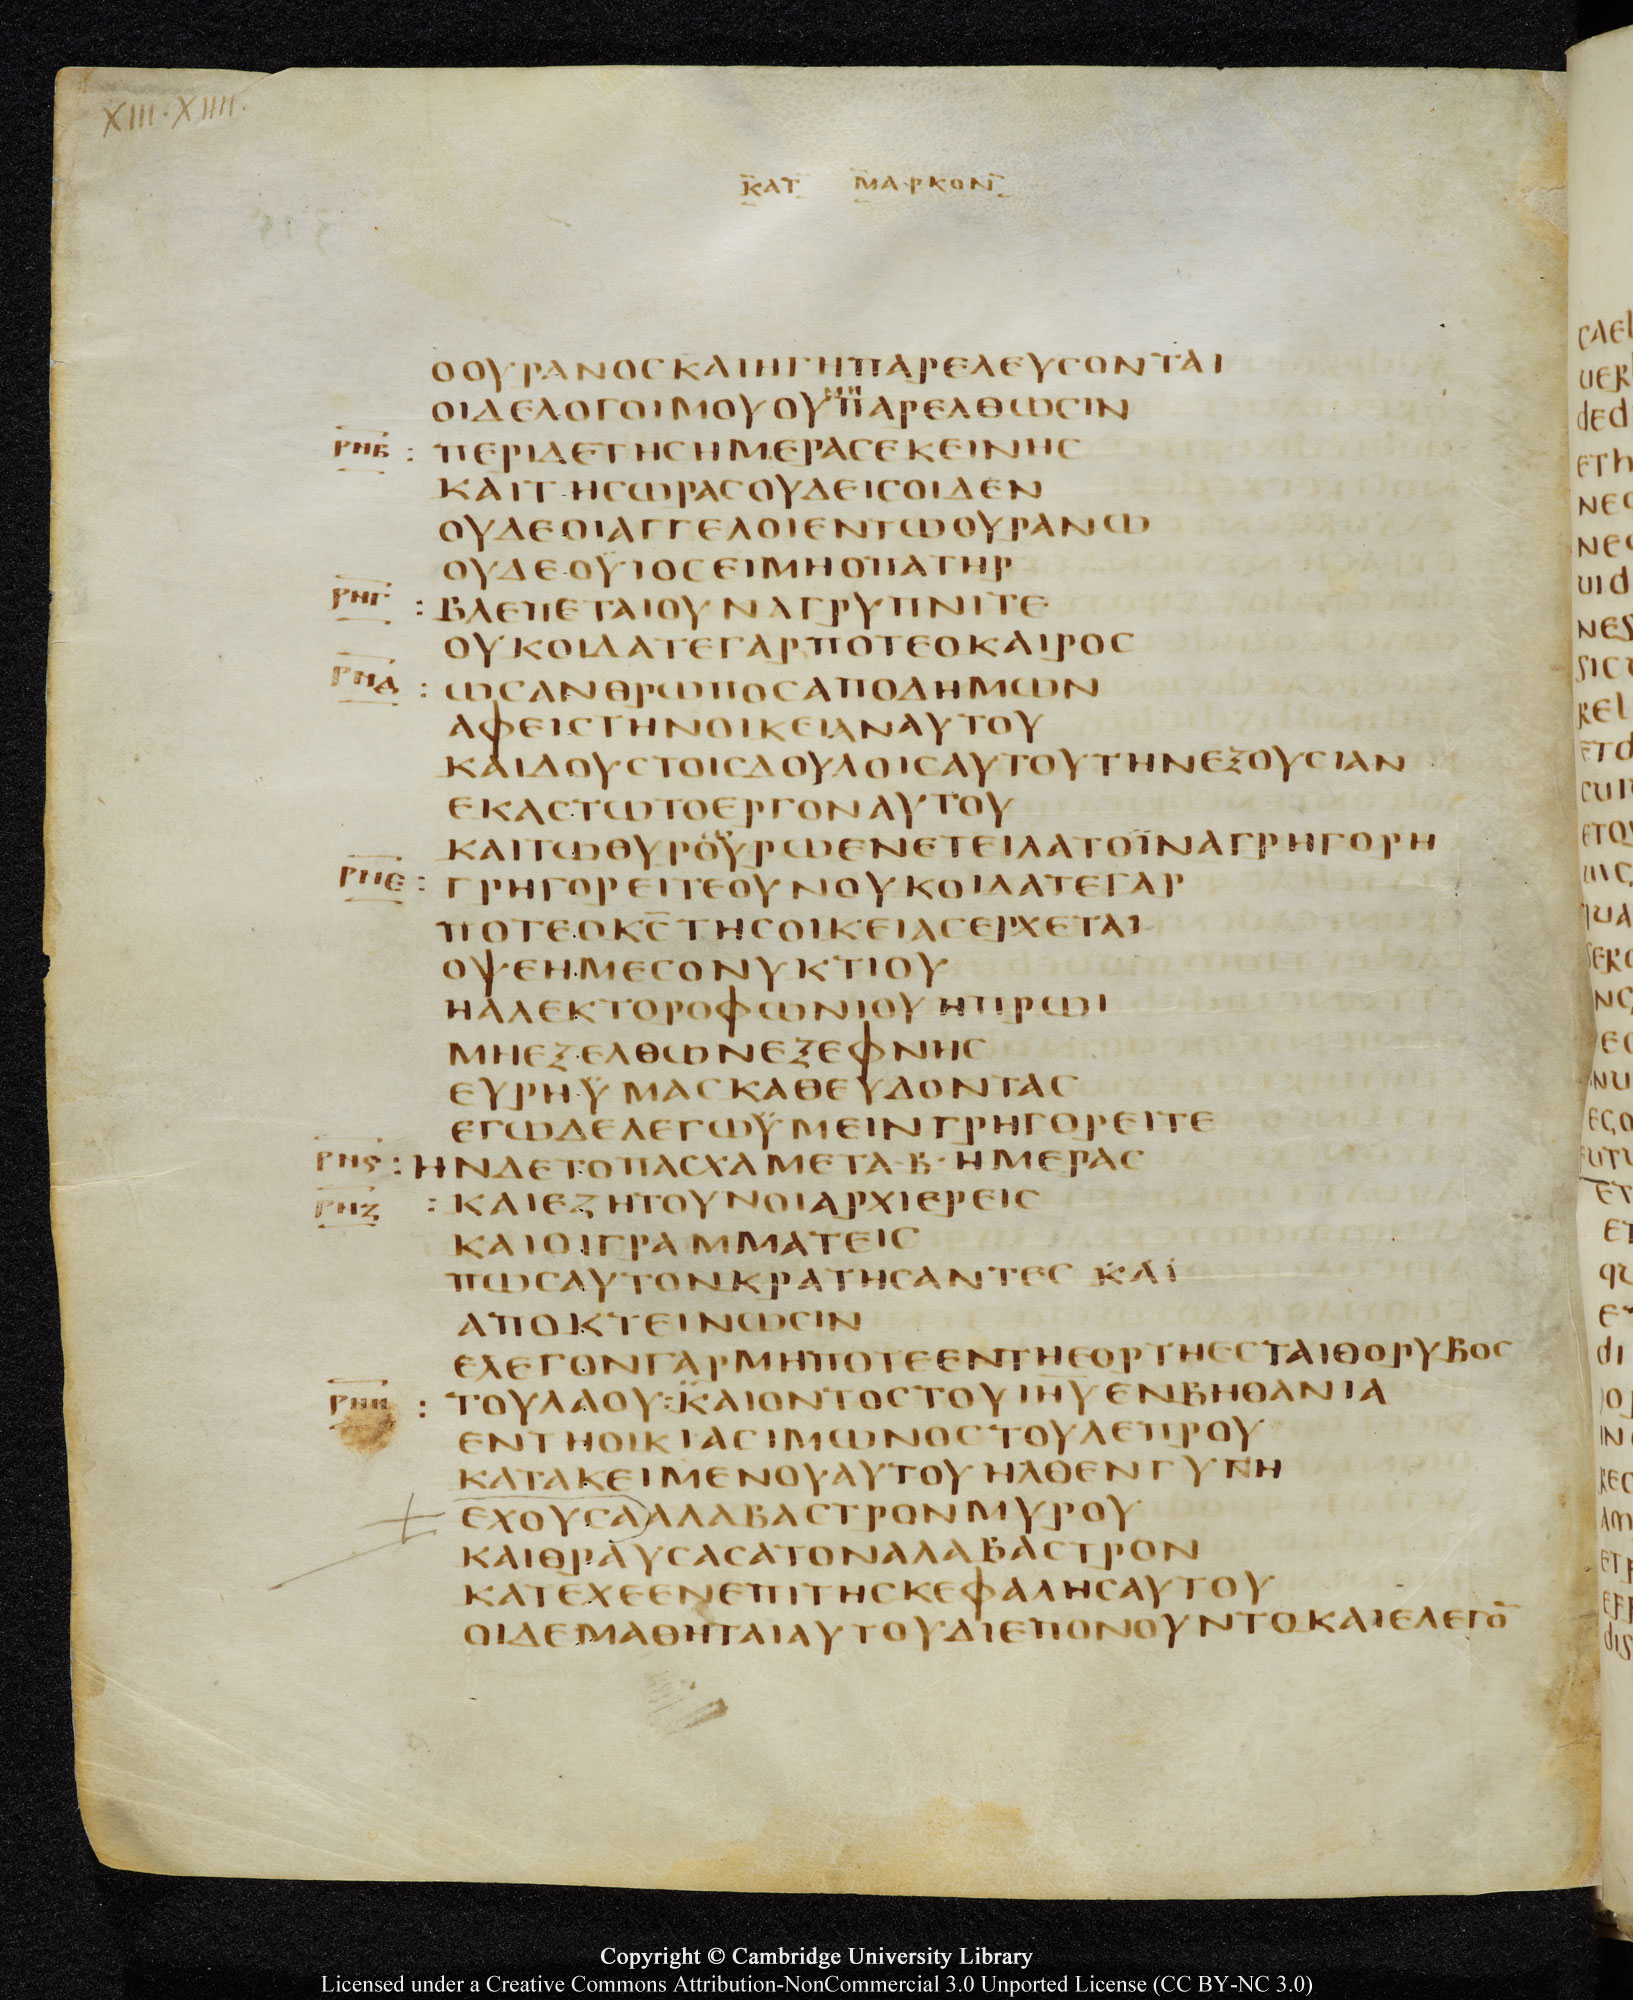 XIII·XIIII·
ΚΑΤ ΜΑΡΚΟΝ
ΟΟΥΡΑΝΟCΚΑΙΗΓΗΠΑΡΕΛΕΥCΟΝΤΑΙ
ΜΗ
ΟΙΔΕΛΟΓΟΙΜΟΥΟΥΠΑΡΕΛΘΩCΙΝ
ΡΗΒ : ΠΕΡΙΔΕΤΗCΗΜΕΡΑCΕΚΕΙΝΗC
ΚΑΙΤΗCΩΡΑCΟΥΔΕΙCΟΙΔΕΝ
ΟΥΔΕΟΙΑΓΓΕΛΟΙΕΝΤΩΟΥΡΑΝΩ
ΟΥΔΕΟΫΙΟCΕΙΜΗΟΠΑΤΗΡ
ΡΗΓ : ΒΛΕΠΕΤΑΙΟΥΝΑΓΡΥΠΝΙΤΕ
ΟΥΚΟΙΔΑΤΕΓΑΡΠΟΤΕΟΚΑΙΡΟC
ΡΗΔ : ΩCΑΝΘΡΩΠΟCΑΠΟΔΗΜΩΝ
ΑΦΕΙCΤΗΝΟΙΚΕΙΑΝΑΥΤΟΥ
ΚΑΙΔΟΥCΤΟΙCΔΟΥΛΟΙCΑΥΤΟΥΤΗΝΕΞΟΥCΙΑΝ
ΕΚΑCΤΩΤΟΕΡΓΟΝΑΥΤΟΥ
ΚΑΙΤΩΘΥΡΟΥΡΩΕΝΕΤΕΙΛΑΤΟΪΝΑΓΡΗΓΟΡΗ
ΡΗΕ : ΓΡΗΓΟΡΕΙΤΕΟΥΝΟΥΚΟΙΔΑΤΕΓΑΡ
ΠΟΤΕΟΚC̅ΤΗCΟΙΚΕΙΑCΕΡΧΕΤΑΙ
ΟΨΕΗΜΕCΟΝΥΚΤΙΟΥ
ΗΑΛΕΚΤΟΡΟΦΩΝΙΟΥΗΠΡΩΙ
ΜΗΕΞΕΛΘΩΝΕΞΕΦΝΗC
ΕΥΡΗΫΜΑCΚΑΘΕΥΔΟΝΤΑC
ΕΓΩΔΕΛΕΓΩΫΜΕΙΝΓΡΗΓΟΡΕΙΤΕ
ΡΗϚ : ΗΝΔΕΤΟΠΑCΧΑΜΕΤΑ·Β·ΗΜΕΡΑC
ΡΗΖ : ΚΑΙΕΖΗΤΟΥΝΟΙΑΡΧΙΕΡΕΙC
ΚΑΙΟΙΓΡΑΜΜΑΤΕΙC
ΠΩCΑΥΤΟΝΚΡΑΤΗCΑΝΤΕC ΚΑΙ
ΑΠΟΚΤΕΙΝΩCΙΝ
ΕΛΕΓΟΝΓΑΡΜΗΠΟΤΕΕΝΤΗΕΟΡΤΗΕCΤΑΙΘΟΡΥΒΟC
ΡΗΗ : ΤΟΥΛΑΟΥ:ΚΑΙΟΝΤΟCΤΟΥΙΗΥΕΝΒΗΘΑΝΙΑ
ΕΝΤΗΟΙΚΙΑCΙΜΩΝΟCΤΟΥΛΕΠΡΟΥ
ΚΑΤΑΚΕΙΜΕΝΟΥΑΥΤΟΥΗΛΘΕΝΓΥΝΗ
ΕΧΟΥCΑΑΛΑΒΑCΤΡΟΝΜΥΡΟΥ
ΚΑΙΘΡΑΥCΑCΑΤΟΝΑΛΑΒΑCΤΡΟΝ
ΚΑΤΕΧΕΕΝΕΠΙΤΗCΚΕΦΑΛΗCΑΥΤΟΥ
ΟΙΔΕΜΑΘΗΤΑΙΑΥΤΟΥΔΙΕΠΟΝΟΥΝΤΟΚΑΙΕΛΕΓΟ̅
Copyright © Cambridge University Library
Licensed under a Creative Commons Attribution-NonCommercial 3.0 Unported License (CC BY-NC 3.0)